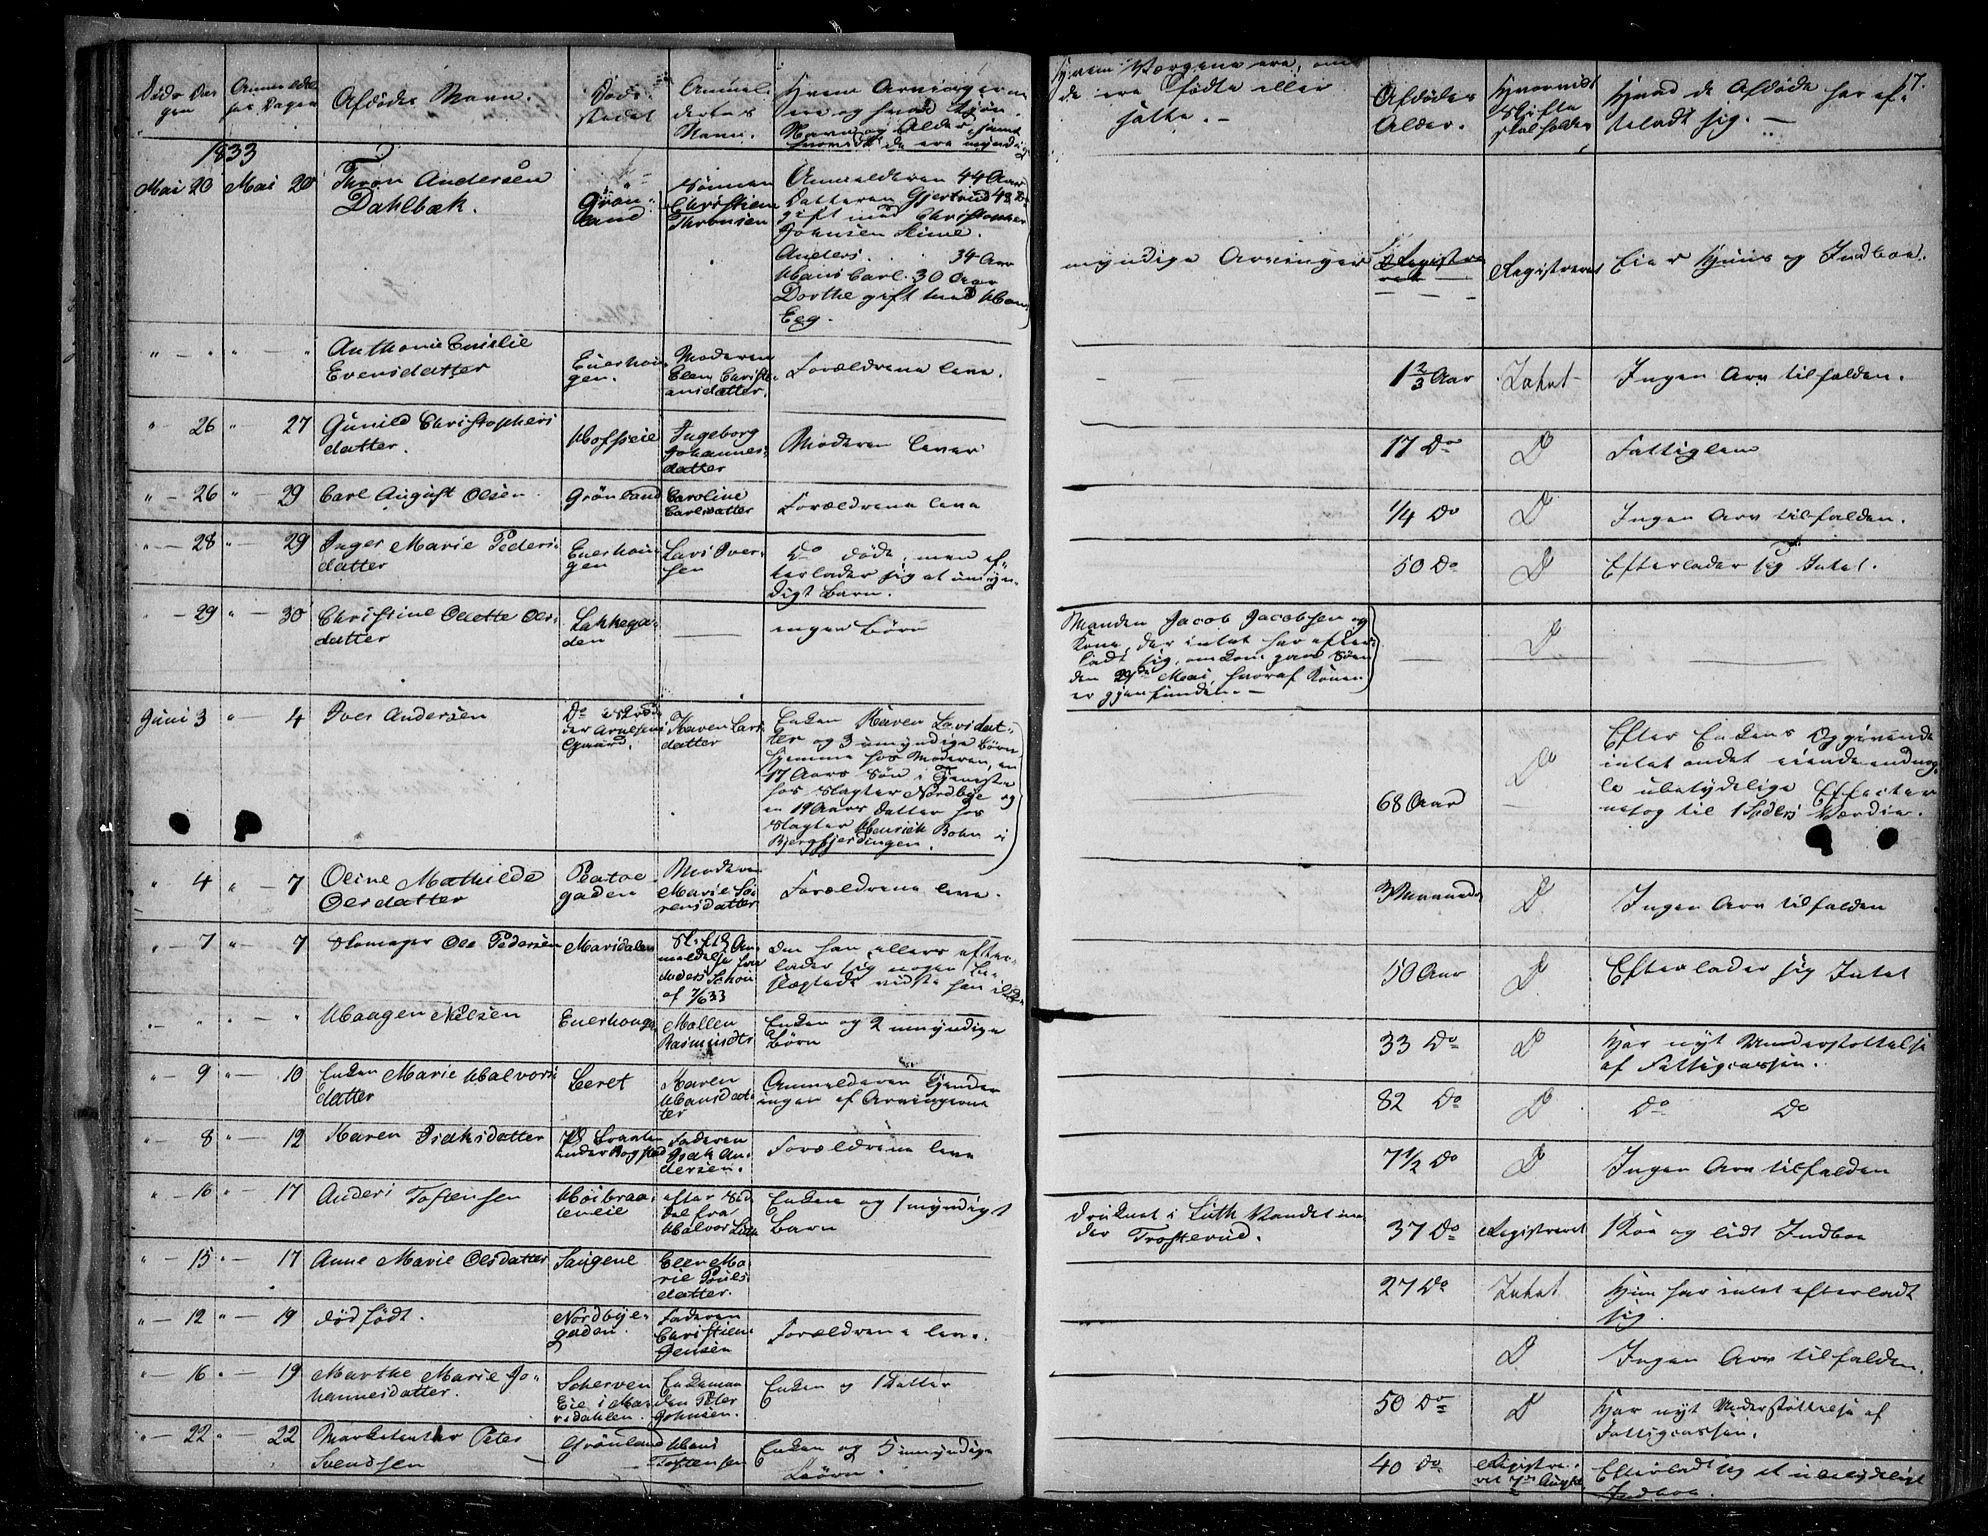 17.
Døds Da-
gen
Anmeldel-
ses Dagen
Afdødes Navn.
Døds-
stedet
Anmel-
derens
Navn.
Hvem Arvingerne
ere og hvad deres
Navn og Alder, samt
hvorvidt de ere myndige
Hvem Værgerne ere, om
de ere Fødte eller
satte. -
Afdødes
Alder.
Hvorvidt
Skifte
skal holdes
Hvad de Afdøde har ef-
terladt sig. -
1833
Mai 20 Mai 20
Thron Andersen
Dahlbæk.
Grøn-
land
Sønnen
Christien
Thronsen
Anmelderen 44 Aar
Datteren Gjertrud 48 Do
gift med Christopher
Johnsen
Anders. 34 Aar
Hans Carl. 30 Aar
Dorthe gift med Hans
Eeg.
myndige Arvinger
Registre-
ret
Registreret
Eier Huus og Indboe.
" - " " - "
Anthonie Emilie
Evensdatter
Enerhau-
gen.
Moderen
Elen Christi-
ansdatter.
Forældrene leve.
1 2/3 Aar
Intet
Ingen Arv tilfalden.
" 26 " - 27
Gunild Christophers
datter.
Hofseie
Ingeborg
Johannes-
datter
Moderen lever
17 Do
D
Fattiglem
" - 26 " - 29
Carl August Olsen
Grønland
Caroline
Carlsdatter
Forældrene leve
1/4 Do
D
Ingen Arv tilfalden.
" - 28 " - 29
Inger Marie Peders-
datter
Enerhau-
gen
Lars Iver-
sen
Do døde, men ef-
terlader sig et umyn-
digt Barn.
50 Do
D
Efterlader sig Intet.
" - 29 " - 30
Christine Olette Ols-
datter
Lakkega-
den
ingen Børn
Manden Jacob Jacobsen og
Kone, der intet har efter-
ladt sig, omkom paa Søen
den 29de Mai, hvoraf Konen
er gjenfunden. -
D
Juni 3 " - 4
Iver Andersen
Do i Skræd-
der Arnesens
Gaard.
Karen Lars
datter
Enken Karen Larsdat-
ter og 3 umyndige Børn
hjemme hos Moderen, en
17 Aars Søn i Tjeneste
hos Slagter Nordbye og
en 19 Aars Datter hos
Slagter Henrich Bohn i
Bjergfjerdingen.
68 Aar
Do
Efter Enkens Opgivende
intet andet eiende end nog-
le ubetydelige Effecter
netop til 1 Værdie.
" 4 " - 7
Oline Mathilde
Olsdatter
Platou
gaden
Moderen
Marie Sø-
rensdatter
Forældrene leve.
3 Maaneder
D
Ingen Arv tilfalden
" - 7 " - 7
Skomager Ole Pedersen
Maridalen
An-
meldelse fra
af 7/6 33
Om han ellers efter-
lader sig nogen
Slægtede vidste han ikke
50 Aar
D
Efterlader sig Intet
" - " " - "
Haagen Nielsen
Enerhaugen
Mallen
Rasmusdtr
Enken og 2 umyndige
Børn
33 Do
D
Har nydt Understøttelse
af Fattigcassen.
" - 9 " - 10
Enken Marie Halvors
datter
Leret
Maren
Hansdat-
ter
Anmelderen kjender
ingen af Arvingerne
82 Do
D
Do Do
" - 8 " - 12
Karen Isaksdatter
under Bogstad
Faderen
Isak An-
dersen.
Forældrene leve
7 1/2 Do
D
Ingen Arv tilfalden
" - 16 " - 17
Anders Tostensen
Høibraa-
teneie
efter Sed-
del fra
Halvor
Enken og 1 myndigt
Barn
druknet i Vandet un-
der Trosterud.
37 Do
Registreret
1 Koe og lidt Indboe
" - 15 " - 17
Anne Marie Olsdatter
Saugene
Elen Ma-
rie Pouls-
datter.
27 Do
Intet
Hun har intet efterladt
sig
" - 12 " - 19
dødfødt.
Nordbye-
gaden.
Faderen
Christien
Jensen
Forældrene leve.
D
Ingen Arv tilfalden.
" - 16 " - 19
Marthe Marie Jo-
hannesdatter.
Scherven
Eie i Ma-
ridahlen.
Enkeman-
den Peter
Johnsen.
Enken og 1 Datter
50 Do
D
Har nydt Understøttelse af
Fattigcassen.
" - 22 " - 22
Marketenter Peter
Svendsen
Grønland
Hans
Tostensen
Enken og 5 umyndige
Børn.
40 Do
Registre-
ret 7de August
Efterladt sig et ubetydeligt
Indboe.